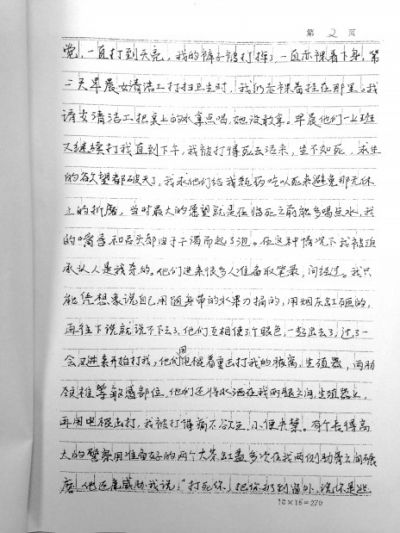 第 2 页
觉,一直打到天亮,我的裤子被打掉了,一直赤裸着下身,第
二天早晨女清洁工打扫卫生时,我仍赤裸着挂在那里。我
请女清洁工把桌上的水拿点喝,她没敢拿。早晨他们一上班
又继续打我直到下午,我被打得死去活来,生不如死,求生
的欲望都破灭了,我求他们给我颗药吃以死来避免那无休
止的折磨,当时最大的愿望就是在临死之前能多喝点水,我
的嘴唇和舌头都由于干渴而起了泡。在这种情况下我被迫
承认人是我杀的。他们进来很多人准备取笔录,问经过。我只
能凭想象说自己用随身带的水果刀捅的,用烟灰缸砸的,
再往下说就说不下去了,他们互相使了个眼色,一起出去了,过了一
会又进来开始打我,他们用电棍着重电打我的
生殖器,两肋
颈椎等敏感部位,他们还将水洒在我两腿之间,生殖器上,
再用电棍击打,我被打得痛不欲生,小便失禁。有个长得高
大的警察用准备好的两个大茶缸盖多次在我两侧肋骨之间碾
磨,他还威胁我说:"打死你,把你扔到窗外,说你是逃
18×15=270